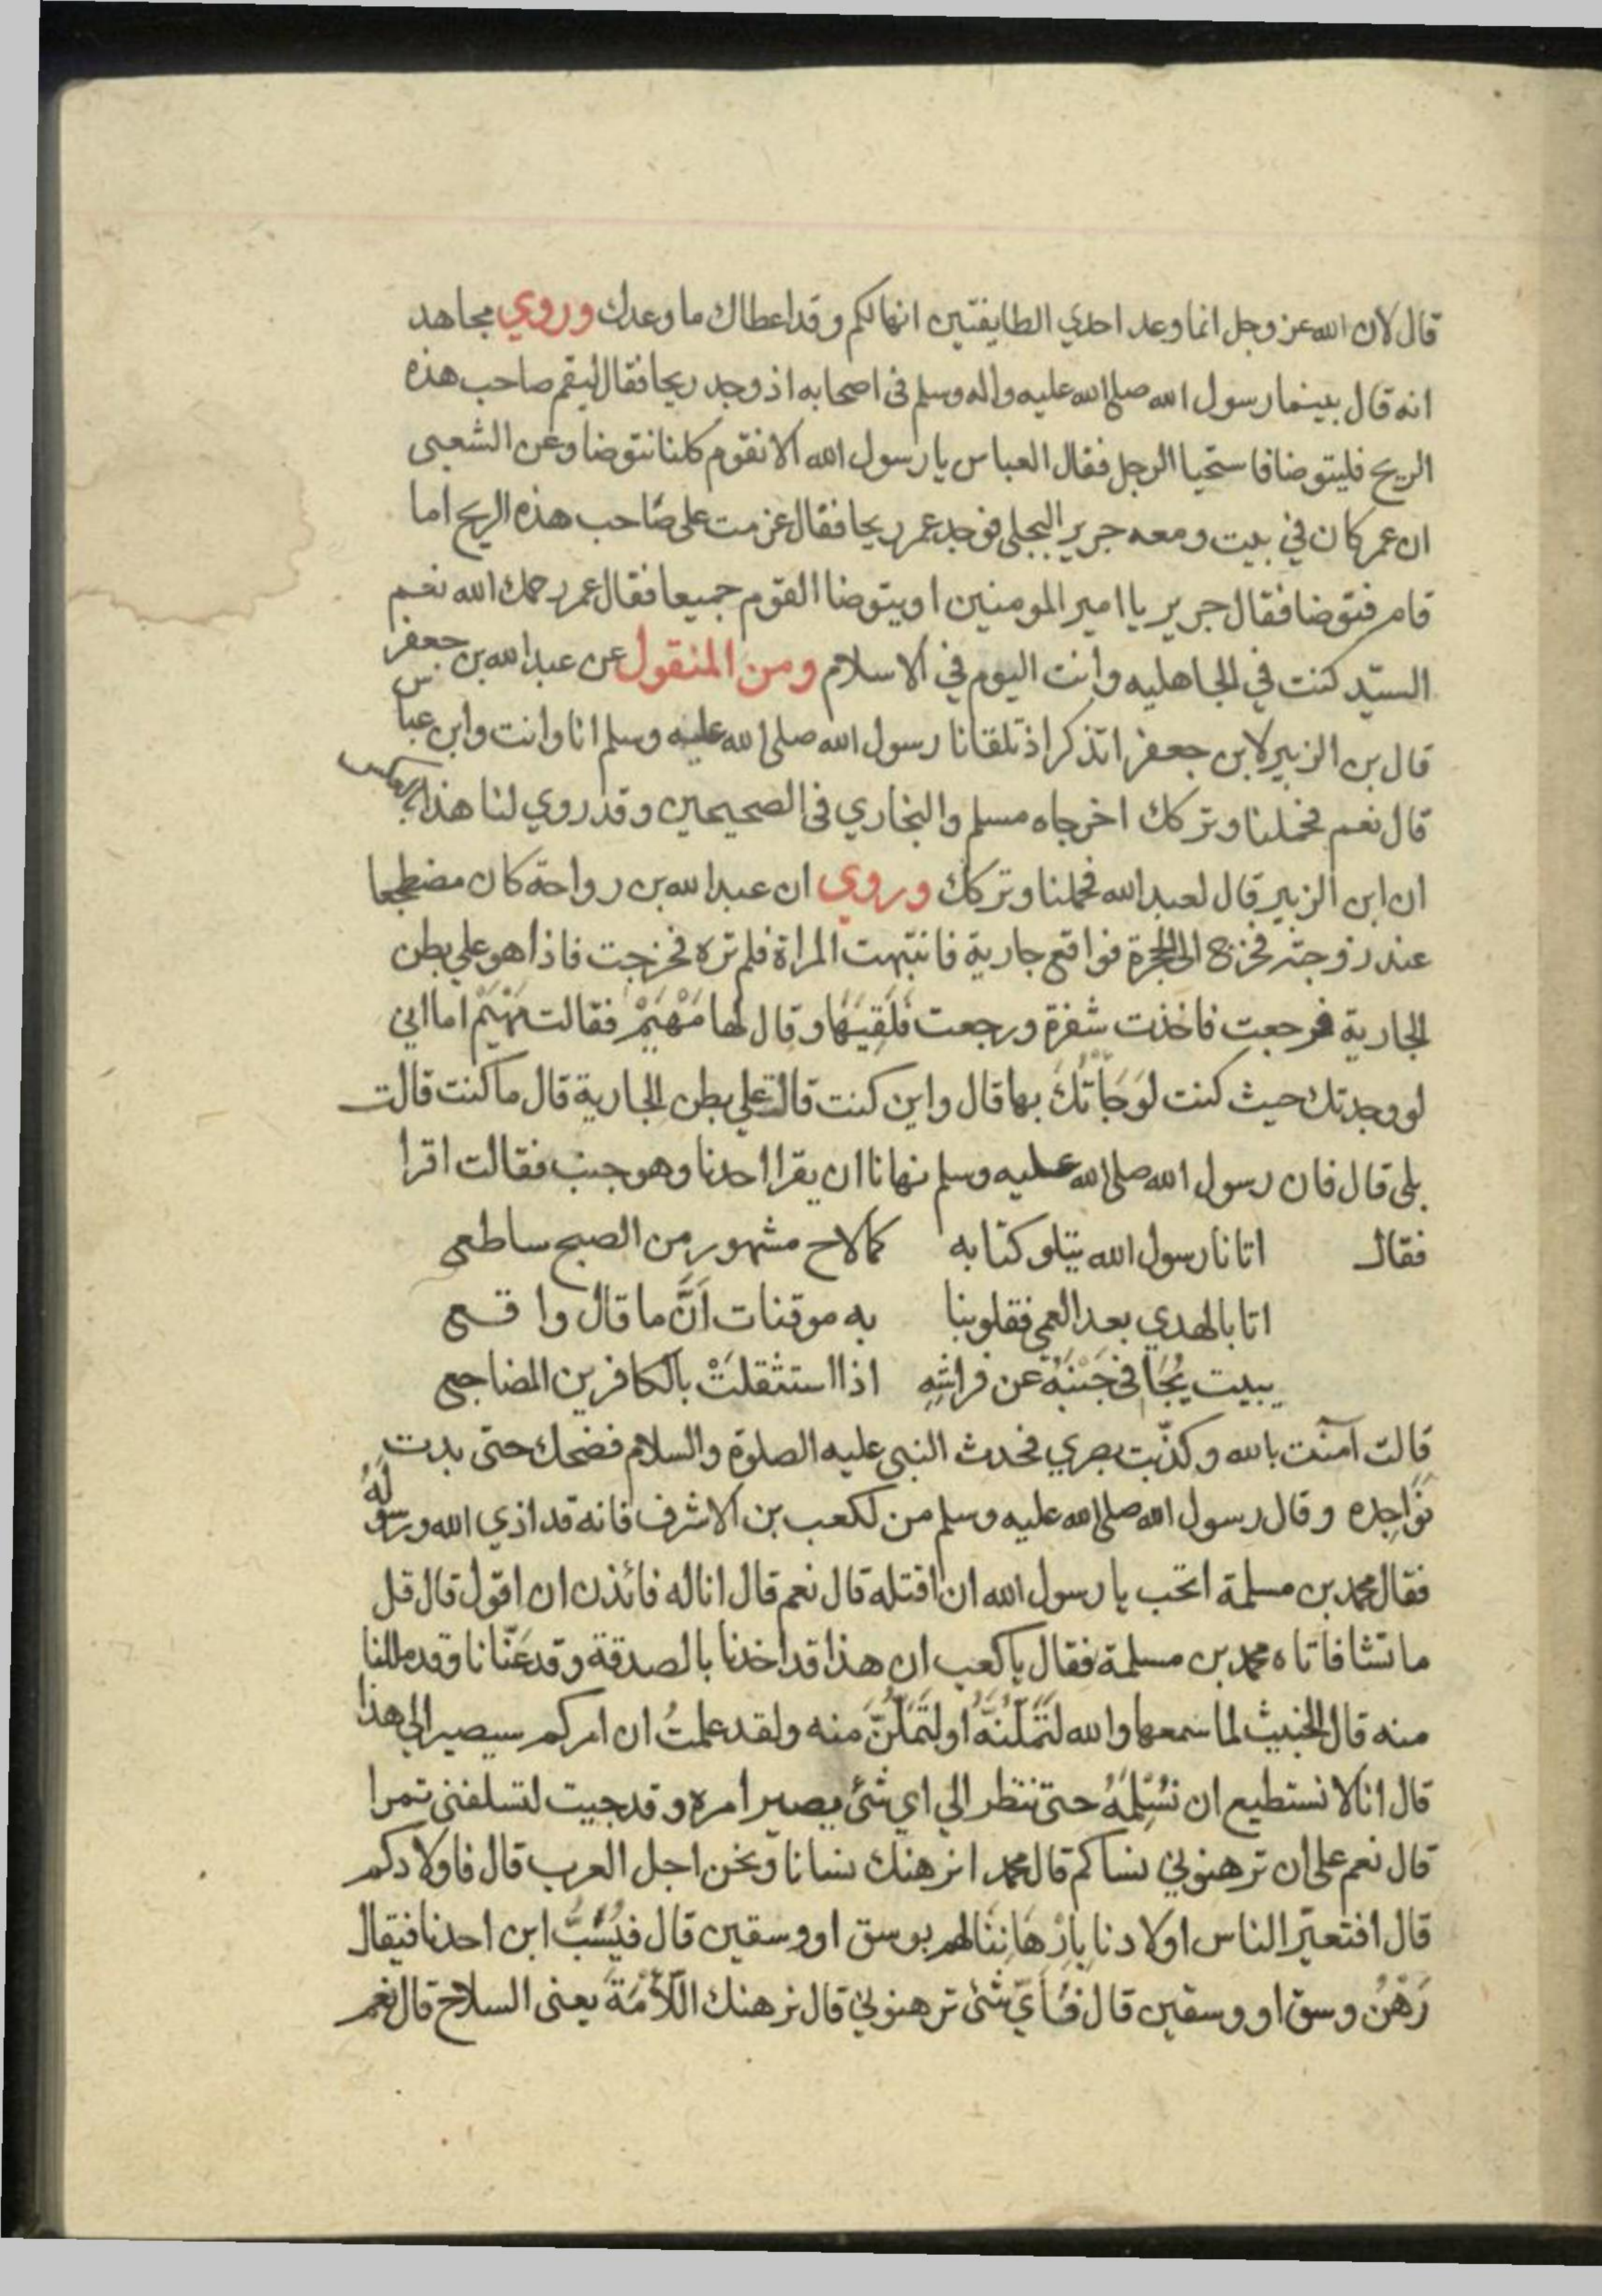 قال لان الله عز وجل انما وعد احدي الطايفتين انها لكم وقد اعطاك ما وعدك وروي مجاهد
انه قال بينما رسول الله صلي الله عليه واله وسلم في اصحابه اذ وجد ريحا فقال ليقم صاحب هذه
الريح فليتوضا فاستحيا الرجل فقال العباس يا رسول الله الا نقوم كلنا نتوضا وعن الشعبي
ان عمر كان في بيت ومعه جرير البجلي فوجد عمر ريحا فقال عزمت علي صاحب هذه الريح اما
قام فتوضا فقال جرير يا امير المومنين او يتوضا القوم جميعا فقال عمر رحمك الله نعم
السيّد كنت في الجاهليه وانت اليوم في الاسلام ومن المنقول عن عبد الله بن جعفر
قال بن الزبير لابن جعفر اتذكر اذ تلقانا رسول الله صلي الله عليه وسلم انا وانت وابن عباس
قال نعم فحملنا وتركك اخرجاه مسلم والبخاري في الصحيحين وقد روي لنا هذا بالعكس
ان ابن الزبير قال لعبد الله فحملنا وتركك وروي ان عبد الله بن رواحة كان مضطجعا
عند زوجته فخرج الي الحجرة فواقع جارية فانتبهت المراة فلم تره فخرجت فاذا هو علي بطن
الجارية فرجعت فاخذت شفرة ورجعت فَلَقِيَهَا وقال لها مَهْيَمْ فقالت مَهْيَمْ اما اني
لو وجدتك حيث كنت لوَجَأْتُكَ بها قال واين كنت قالت علي بطن الجارية قال ما كنت قالت
بلي قال فان رسول الله صلي الله عليه وسلم نهانا ان يقرا احدنا وهو جنب فقالت اقرا
فقال اتانا رسول الله يتلو كتابه كما لاح مشهور من الصبح ساطعي
اتا بالهدي بعد العمي فقلوبنا به موقنات اَنَّ ما قال واقع
يبيت يُجَافي جَنْبَهُ عن فراشِهِ اذا استثقلَتْ بالكافرين المضاجع
قالت آمنت بالله وكذّبت بصري فحدث النبي عليه الصلوة والسلام فضحك حتي بدت
نَوَاجِذه وقال رسول الله صلي الله عليه وسلم من لكعب بن الاشرف فانه قد اذي الله ورسولَهُ
فقال محمد بن مسلمة اتحب يا رسول الله ان اقتله قال نعم قال انا له فائذن ان اقول قال قل
ما تشا فاتاه محمد بن مسلمة فقال يا كعب ان هذا قد اخدنا بالصدقة وقد عَنّانا وقد مللنا
منه قال الخبيث لما سمعها والله لتَمَلُّنَّهُ او لتَمَلُّنَّ منه ولقد علمتُ ان امركم سيصير الي هذا
قال انا لا نستطيع ان نُسْلِمَهُ حتي ننظر الي اي شئ يصير امره وقد جيت لتسلفني تمرا
قال نعم علي ان ترهنوني نساكم قال محمد انرهنك نسانا ونحن اجل العرب قال فاولادكم
قال افتعيّر الناس اولادنا باِرْهَانِنَا لهم بوسق او وسقين قال فيُسَبُّ ابن احدنا فيقال
رَهْنُ وسق او وسقين قال فَأَيّ شئ ترهنوني قال نرهنك اللّأمَةَ يعني السلاح قال نعم